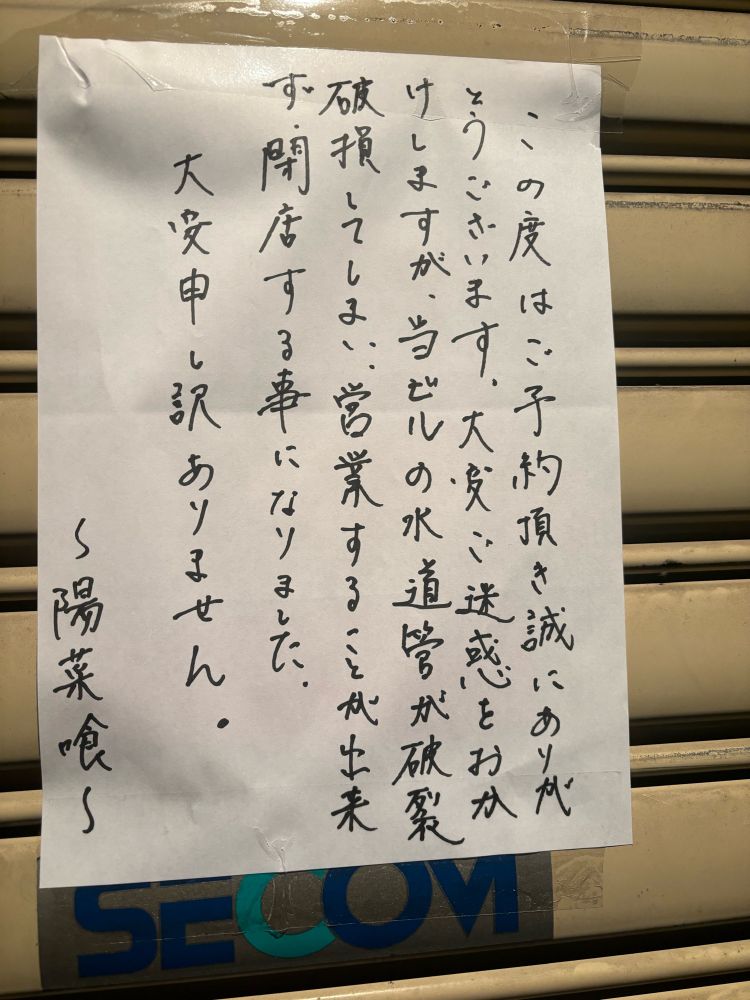 この度はご予約頂き誠にありが
とうございます。大変ご迷惑をおか
けしますが、当ビルの水道管が破裂
破損してしまい、営業することが出来
ず、閉店する事になりました。
大変申し訳ありません。
～陽菜喰～
SECOM